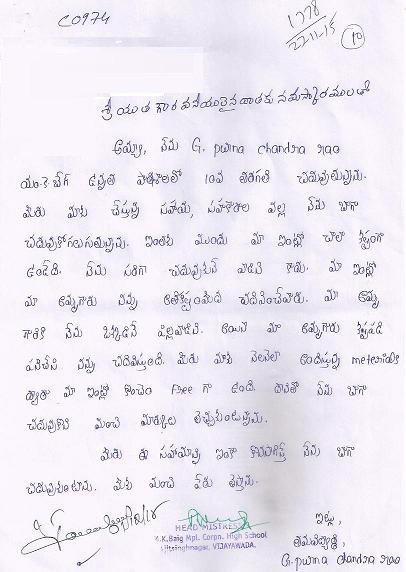 C0974
1778
22-11-15
10
శ్రీ యుత గౌరవనీయులైన దాతకు నమస్కారములతో
అయ్యా, నేను G. purna chandra rao
యం.కె. బేగ్ ఉన్నత పాఠశాలలో 10వ తరగతి చదువుతున్నాను.
మీరు మాకు చేస్తున్న సహాయ, సహకారాల వల్ల నేను బాగా
చదువుకోగలుగుతున్నాను. ఇంతకు ముందు మా ఇంట్లో చాలా కష్టంగా
ఉండేది. నేను సరిగా చదువుకునే వాడిని కాదు. మా ఇంట్లో
మా అమ్మగారు నన్ను చదివించేవారు. మా అమ్మ
గారికి నేను ఒక్కడినే పిల్లవాడిని. అయినా మా అమ్మగారు కష్టపడి
పనిచేసి నన్ను చదివిస్తుంది. మీరు మాకు నెలనెలా అందిస్తున్న meterials
ద్వారా మా ఇంట్లో కొంచెం Free గా ఉంది. దానితో నేను బాగా
చదువుకొని మంచి మార్కులు తెచ్చుకుంటున్నాను.
మీరు ఈ సహాయాన్ని ఇంకా కొనసాగిస్తే నేను బాగా
చదువుకుంటాను. మీకు మంచి పేరు తెస్తాను.
ఇట్లు,
HEAD MISTRESS
M.K.Baig Mpl. Corpn. High School
Sitsinghnagar, VIJAYAWADA.
తమ విద్యార్థి
G. purna chandra rao